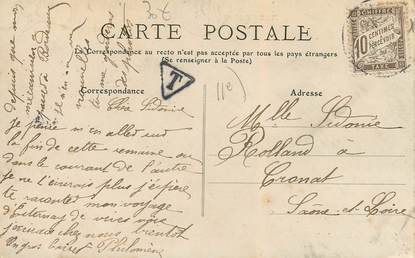 30€
CARTE POSTALE
La Correspondance au recto n'est pas acceptée par tous les pays étrangers
(Se renseigner à la Poste)
Correspondance
Adresse
T
11e)
CHIFFRE
10 CENTIMES
À PERCEVOIR
TAXE
Chère Sidonie
Je pense m'en aller sur
la fin de cette semaine ou
dans le courant de l'autre
Je ne t'écrirais plus j'espère
te raconter mon voyage
d'Epernay de vive voix
chez nous bientot
Un gros baiser Philomène
depuis que
Mlle Sidonie
Rolland à
Cronat
Saône-et-Loire